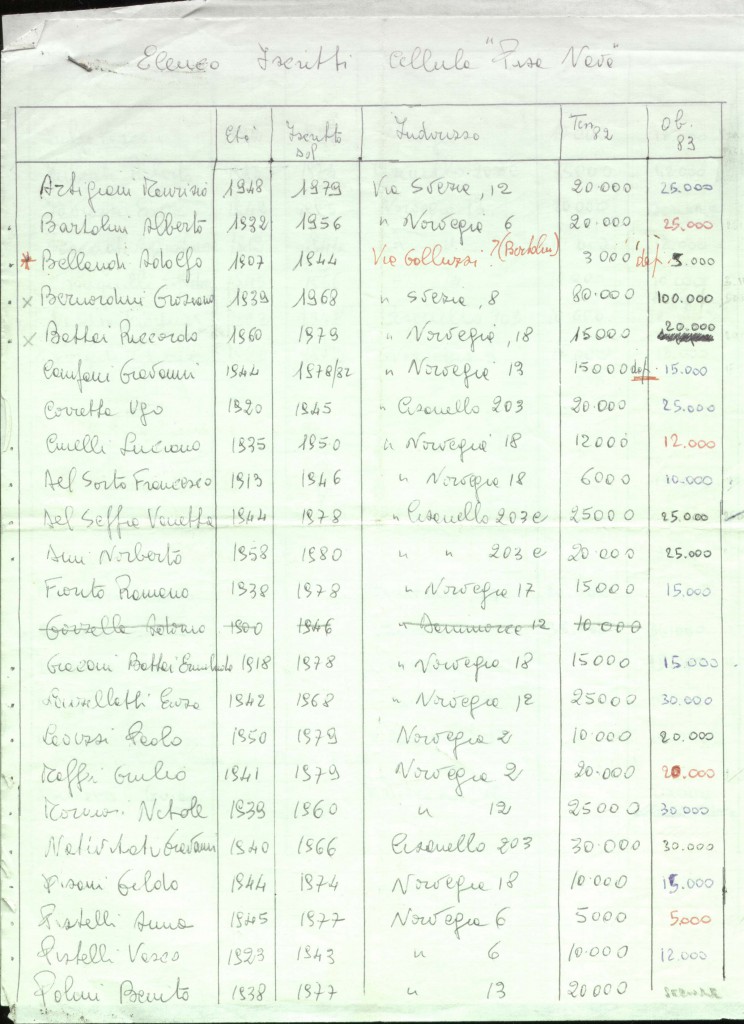 Elenco Iscritti Cellula "Pisa Nova"
Età Iscritto dal Indirizzo Tess 82 Ob. 83
Artigiani Maurizio 1948 1979 Via Svezia, 12 20.000 25.000
Bartolini Alberto 1932 1956 " Norvegia 6 20.000 25.000
* Bellandi Adolfo 1907 1944 Via Golluzzi? (Bartolini) 3000 "def. 5.000
x Bernardini Graziano 1939 1968 " Svezia, 8 80.000 100.000
x Battai Riccardo 1960 1979 " Norvegia, 18 15000 20.000
Giovanni 1944 1978/82 " Norvegia 13 15000 def. 15.000
Corretta Ugo 1920 1945 " Cisanello 203 20.000 25.000
Luciano 1935 1950 " Norvegia 18 12000 12.000
Del Sarto Francesco 1913 1946 " Norvegia 18 6000 10.000
Del Seppia Vanetta 1944 1978 " Cisanello 203 e 25000 25.000
Norberto 1958 1980 " " 203 e 20.000 25.000
Romano 1938 1978 " Norvegia 17 15000 15.000
1900 1946 " Danimarca 12 10.000
Battai 1918 1978 " Norvegia 18 15000 15.000
Enzo 1942 1968 " Norvegia, 12 25000 30.000
Paolo 1950 1979 Norvegia 2 10.000 20.000
Maffei Giulio 1941 1979 Norvegia 2 20.000 20.000
1939 1960 " 12 25000 30.000
Giovanni 1940 1966 Cisanello 203 30.000 30.000
Pisani Gildo 1944 1974 Norvegia 18 10.000 15.000
Pistelli Anna 1945 1977 Norvegia 6 5000 5.000
Pistelli Vasco 1923 1943 " 6 10.000 12.000
Benito 1938 1977 " 13 20000